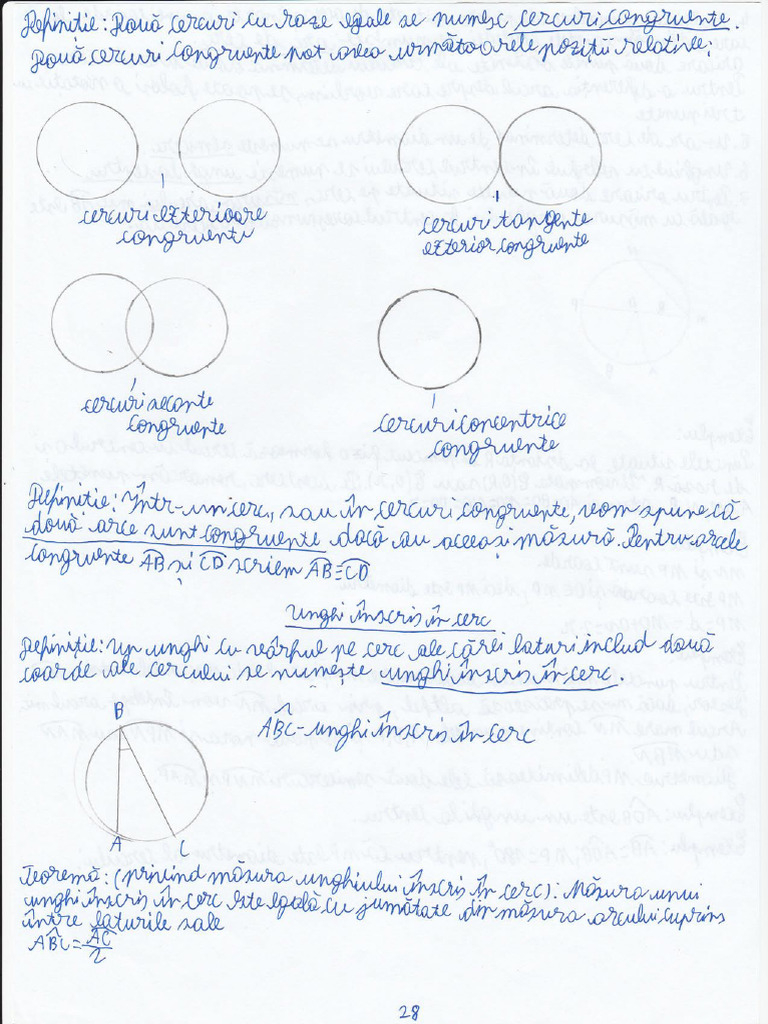 Definiție: Două cercuri cu raze egale se numesc cercuri congruente.
Două cercuri congruente pot avea următoarele poziții relative:
cercuri exterioare
congruente
cercuri tangente
exterior congruente
cercuri secante
congruente
cercuri concentrice
congruente
Definiție: Într-un cerc, sau în cercuri congruente, vom spune că
două arce sunt congruente dacă au aceeași măsură. Pentru arcele
congruente AB și CD scriem AB≡CD
Unghi înscris în cerc
Definiție: Un unghi cu vârful pe cerc ale cărei laturi includ două
coarde ale cercului se numește unghi înscris în cerc.
B
ABC - unghi înscris în cerc
A C
Teoremă: (privind măsura unghiului înscris în cerc): Măsura unui
unghi înscris în cerc este egală cu jumătate din măsura arcului cuprins
între laturile sale
ABC = AC/2
28